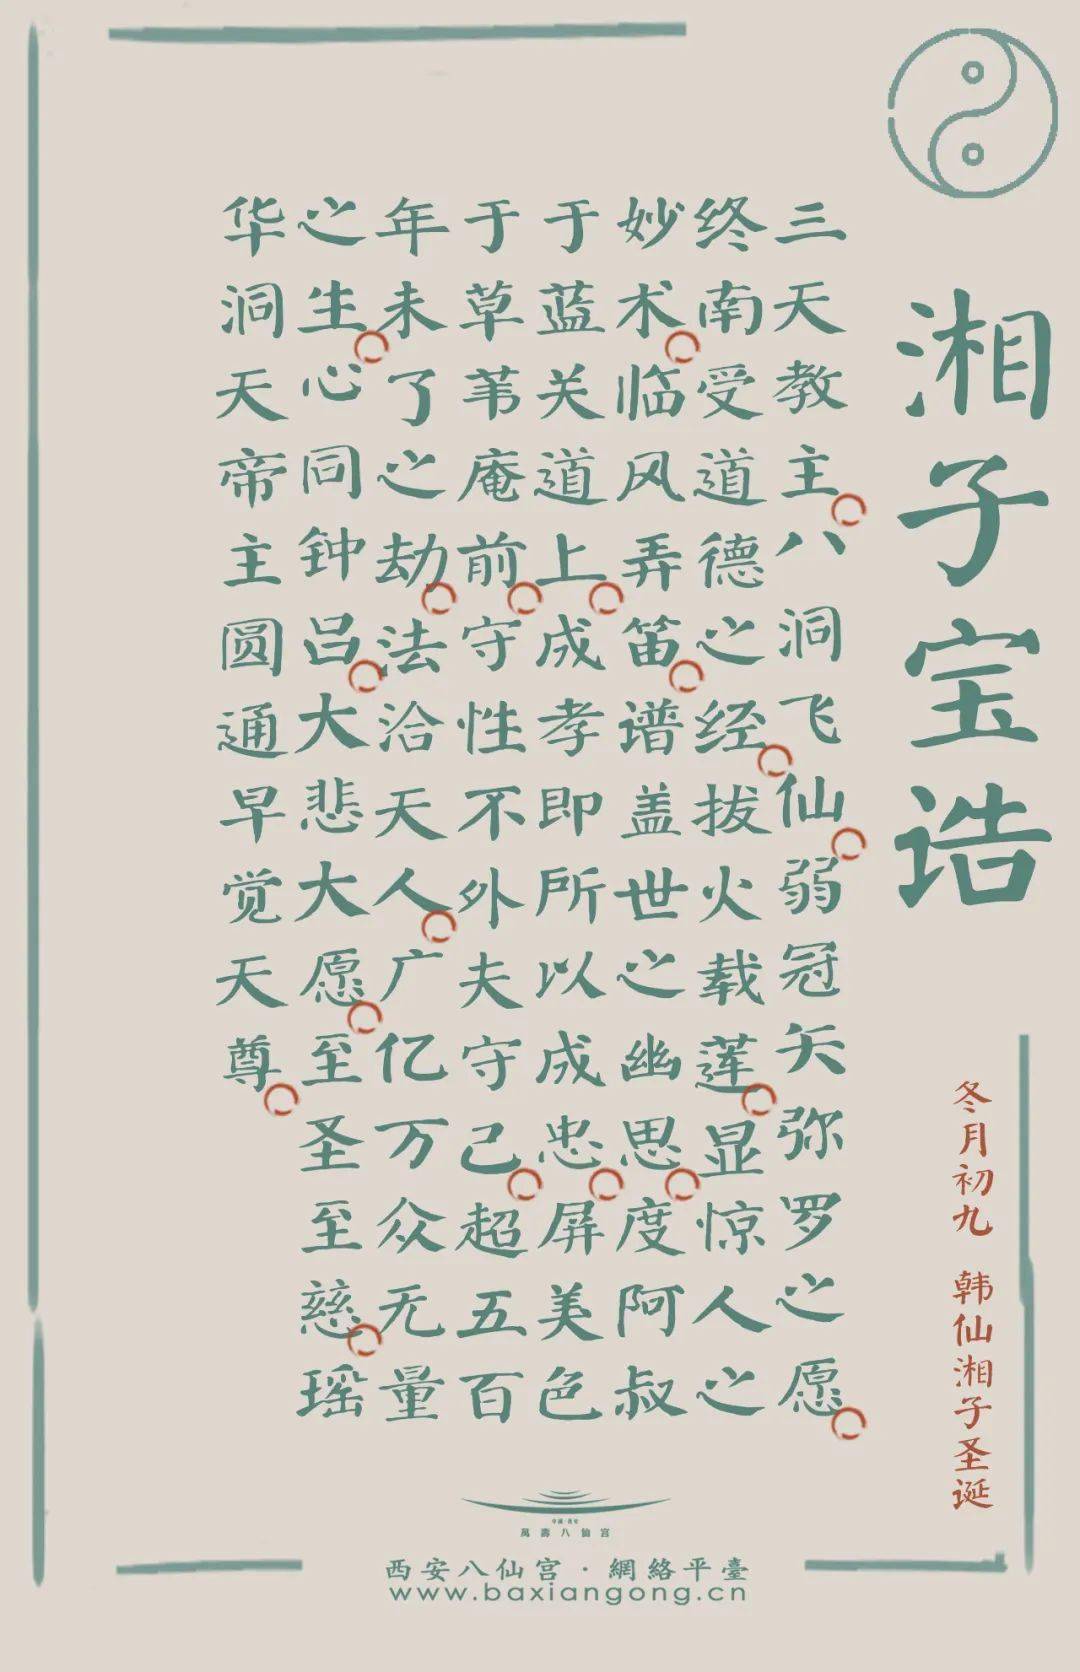 湘子宝诰
三天教主八洞飞仙弱冠矢弥罗之愿
终南受道德之经拔火载莲显惊人之
妙术临风弄笛谱盖世之幽思度阿叔
于蓝关道上成孝即所以成忠屏美色
于草苇庵前守性不外夫守己超五百
年未了之劫法洽天人广亿万众无量
之生心同钟吕大悲大愿至圣至慈瑶
华洞天帝主圆通早觉天尊
冬月初九 韩仙湘子圣诞
萬壽八仙宫
西安八仙宫·網絡平臺
www.baxiangong.cn